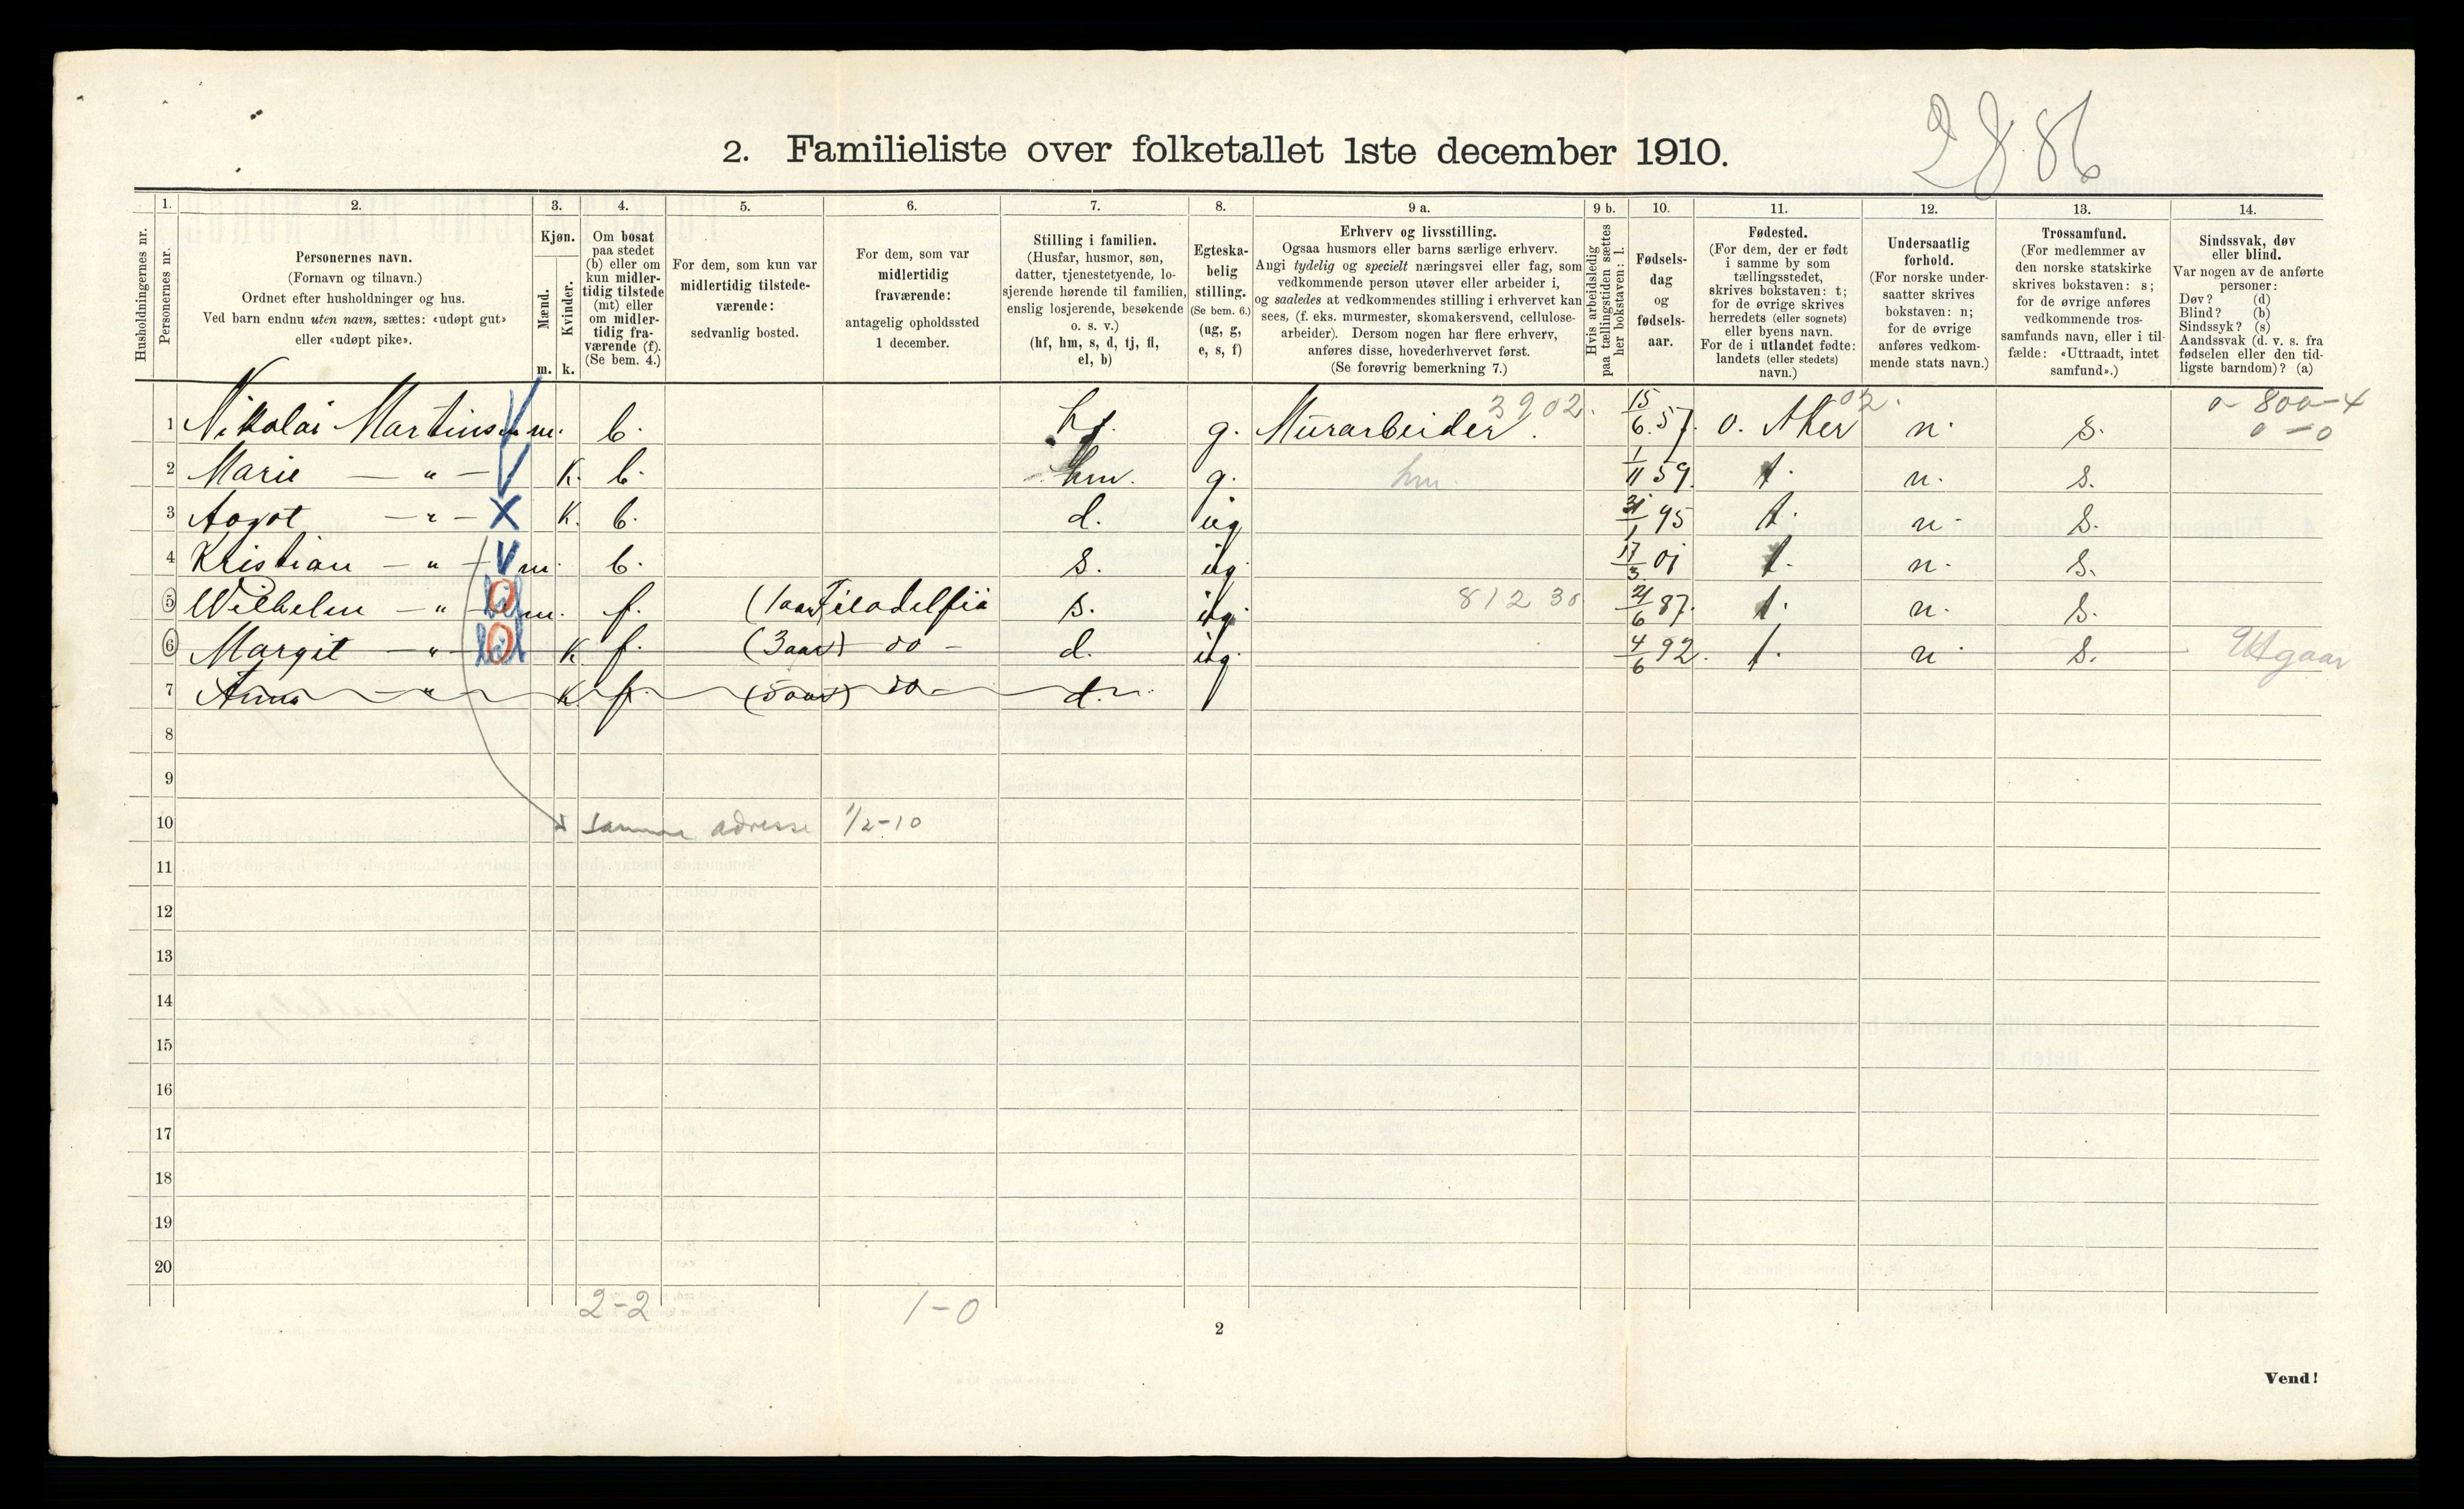 2886
2. Familieliste over folketallet 1ste december 1910.
1. 2. 3. 4. 5. 6. 7. 8. 9 a. 9 b. 10. 11. 12. 13. 14.
Husholdningernes nr.
Personernes nr.
Personernes navn.
(Fornavn og tilnavn.)
Ordnet efter husholdninger og hus.
Ved barn endnu uten navn, sættes: «udøpt gut»
eller «udøpt pike».
Kjøn.
Mænd.
Kvinder.
m. k.
Om bosat
paa stedet
(b) eller om
kun midler-
tidig tilstede
(mt) eller
om midler-
tidig fra-
værende (f).
(Se bem. 4.)
For dem, som kun var
midlertidig tilstede-
værende:
sedvanlig bosted.
For dem, som var
midlertidig
fraværende:
antagelig opholdssted
1 december.
Stilling i familien.
(Husfar, husmor, søn,
datter, tjenestetyende, lo-
sjerende hørende til familien,
enslig losjerende, besøkende
o. s. v.)
(hf, hm, s, d, tj, fl,
el, b)
Egteska-
belig
stilling.
(Se bem. 6.)
(ug, g,
e, s, f)
Erhverv og livsstilling.
Ogsaa husmors eller barns særlige erhverv.
Angi tydelig og specielt næringsvei eller fag, som
vedkommende person utøver eller arbeider i,
og saaledes at vedkommendes stilling i erhvervet kan
sees, (f. eks. murmester, skomakersvend, cellulose-
arbeider). Dersom nogen har flere erhverv,
anføres disse, hovederhvervet først.
(Se forøvrig bemerkning 7.)
Hvis arbeidsledig
paa tællingstiden sættes
her bokstaven: l.
Fødsels-
dag
og
fødsels-
aar.
Fødested.
(For dem, der er født
i samme by som
tællingsstedet,
skrives bokstaven: t;
for de øvrige skrives
herredets (eller sognets)
eller byens navn.
For de i utlandet fødte:
landets (eller stedets)
navn.)
Undersaatlig
forhold.
(For norske under-
saatter skrives
bokstaven: n;
for de øvrige
anføres vedkom-
mende stats navn.)
Trossamfund.
(For medlemmer av
den norske statskirke
skrives bokstaven: s;
for de øvrige anføres
vedkommende tros-
samfunds navn, eller i til-
fælde: «Uttraadt, intet
samfund».)
Sindssvak, døv
eller blind.
Var nogen av de anførte
personer:
Døv? (d)
Blind? (b)
Sindssyk? (s)
Aandssvak (d. v. s. fra
fødselen eller den tid-
ligste barndom)? (a)
3902. 02. 0 - 800-4
1 Nikolai Martinsen m. b. hf. g. Murarbeider. 15/6.57. o. Aker n. s. 0-0
2 Marie — " — K. b. hm. g. hm. 1/11 59. t. n. s.
3 Aagot — " — X K. b. d. ug 31/1 95 t. n. s.
4 Kristian — " — m. b. s. ug. 17/3. 01 t. n. s.
5 Wilhelm — " — m. f. (1 aar) Filadelfia s. ug. 81230 21/6 87. t. n. s.
6 Margit — " — K f. (3 aar) — do — d. ug. 4/6 92. t. n. s. Utgaar
7 Anna — " — K f. (5 aar) do — d.
8
9
10 samme adresse 1/2-10
11
12
13
14
15
16
17
18
19
20
2-2 1-0
2
Vend!